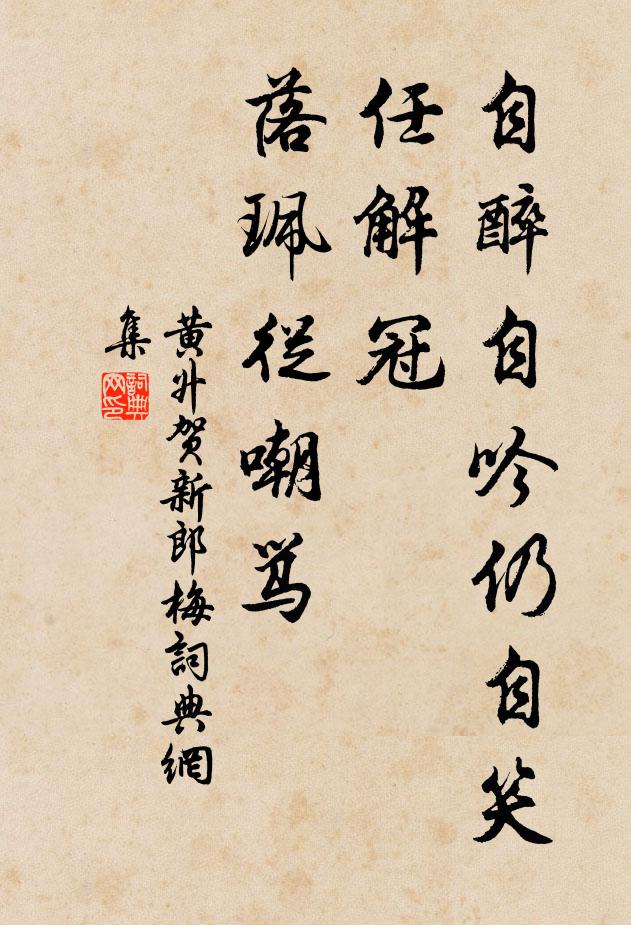 自醉自吟仍自笑
任解冠
落珮從嘲骂
黄升贺新郎梅詞典網
集
詞典
网印